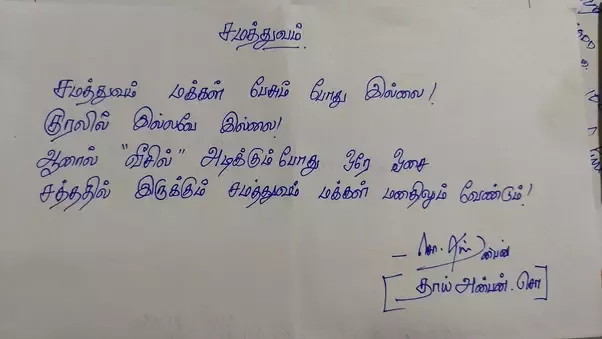 சமத்துவம்
சமத்துவம் மக்கள் பேசும் போது இல்லை!
குரலில் இல்லவே இல்லை!
ஆனால் "வீசில்" அடிக்கும்போது ஒரே ஓசை
சத்தத்தில் இருக்கும் சமத்துவம் மக்கள் மனதிலும் வேண்டும்!
[தாய் அன்பன். சொ]